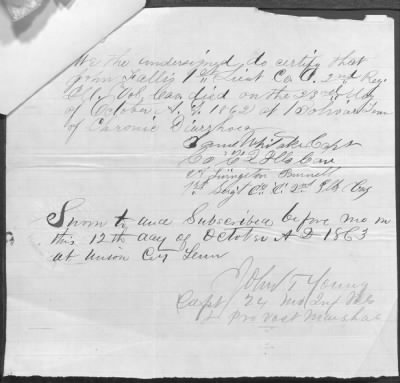 We the undersigned do certify that
John Fallis 1st Lieut Co C. 2nd Reg.
Ills Vol, Cav died on the 23rd day
of October A. D. 1862 at Bolivar Tenn
of Chronic Diarrhoea
Whitaker Capt
Co C 2 Ills Cav
Livingston Burnett
1st Sergt Co. C. 2nd Ills Cav
Sworn to and Subscribed before me on
this 12th day of October A D 1863
at Union City Tenn
John T Young
Capt 24 Mo Inf Vols
& Provost Marshal